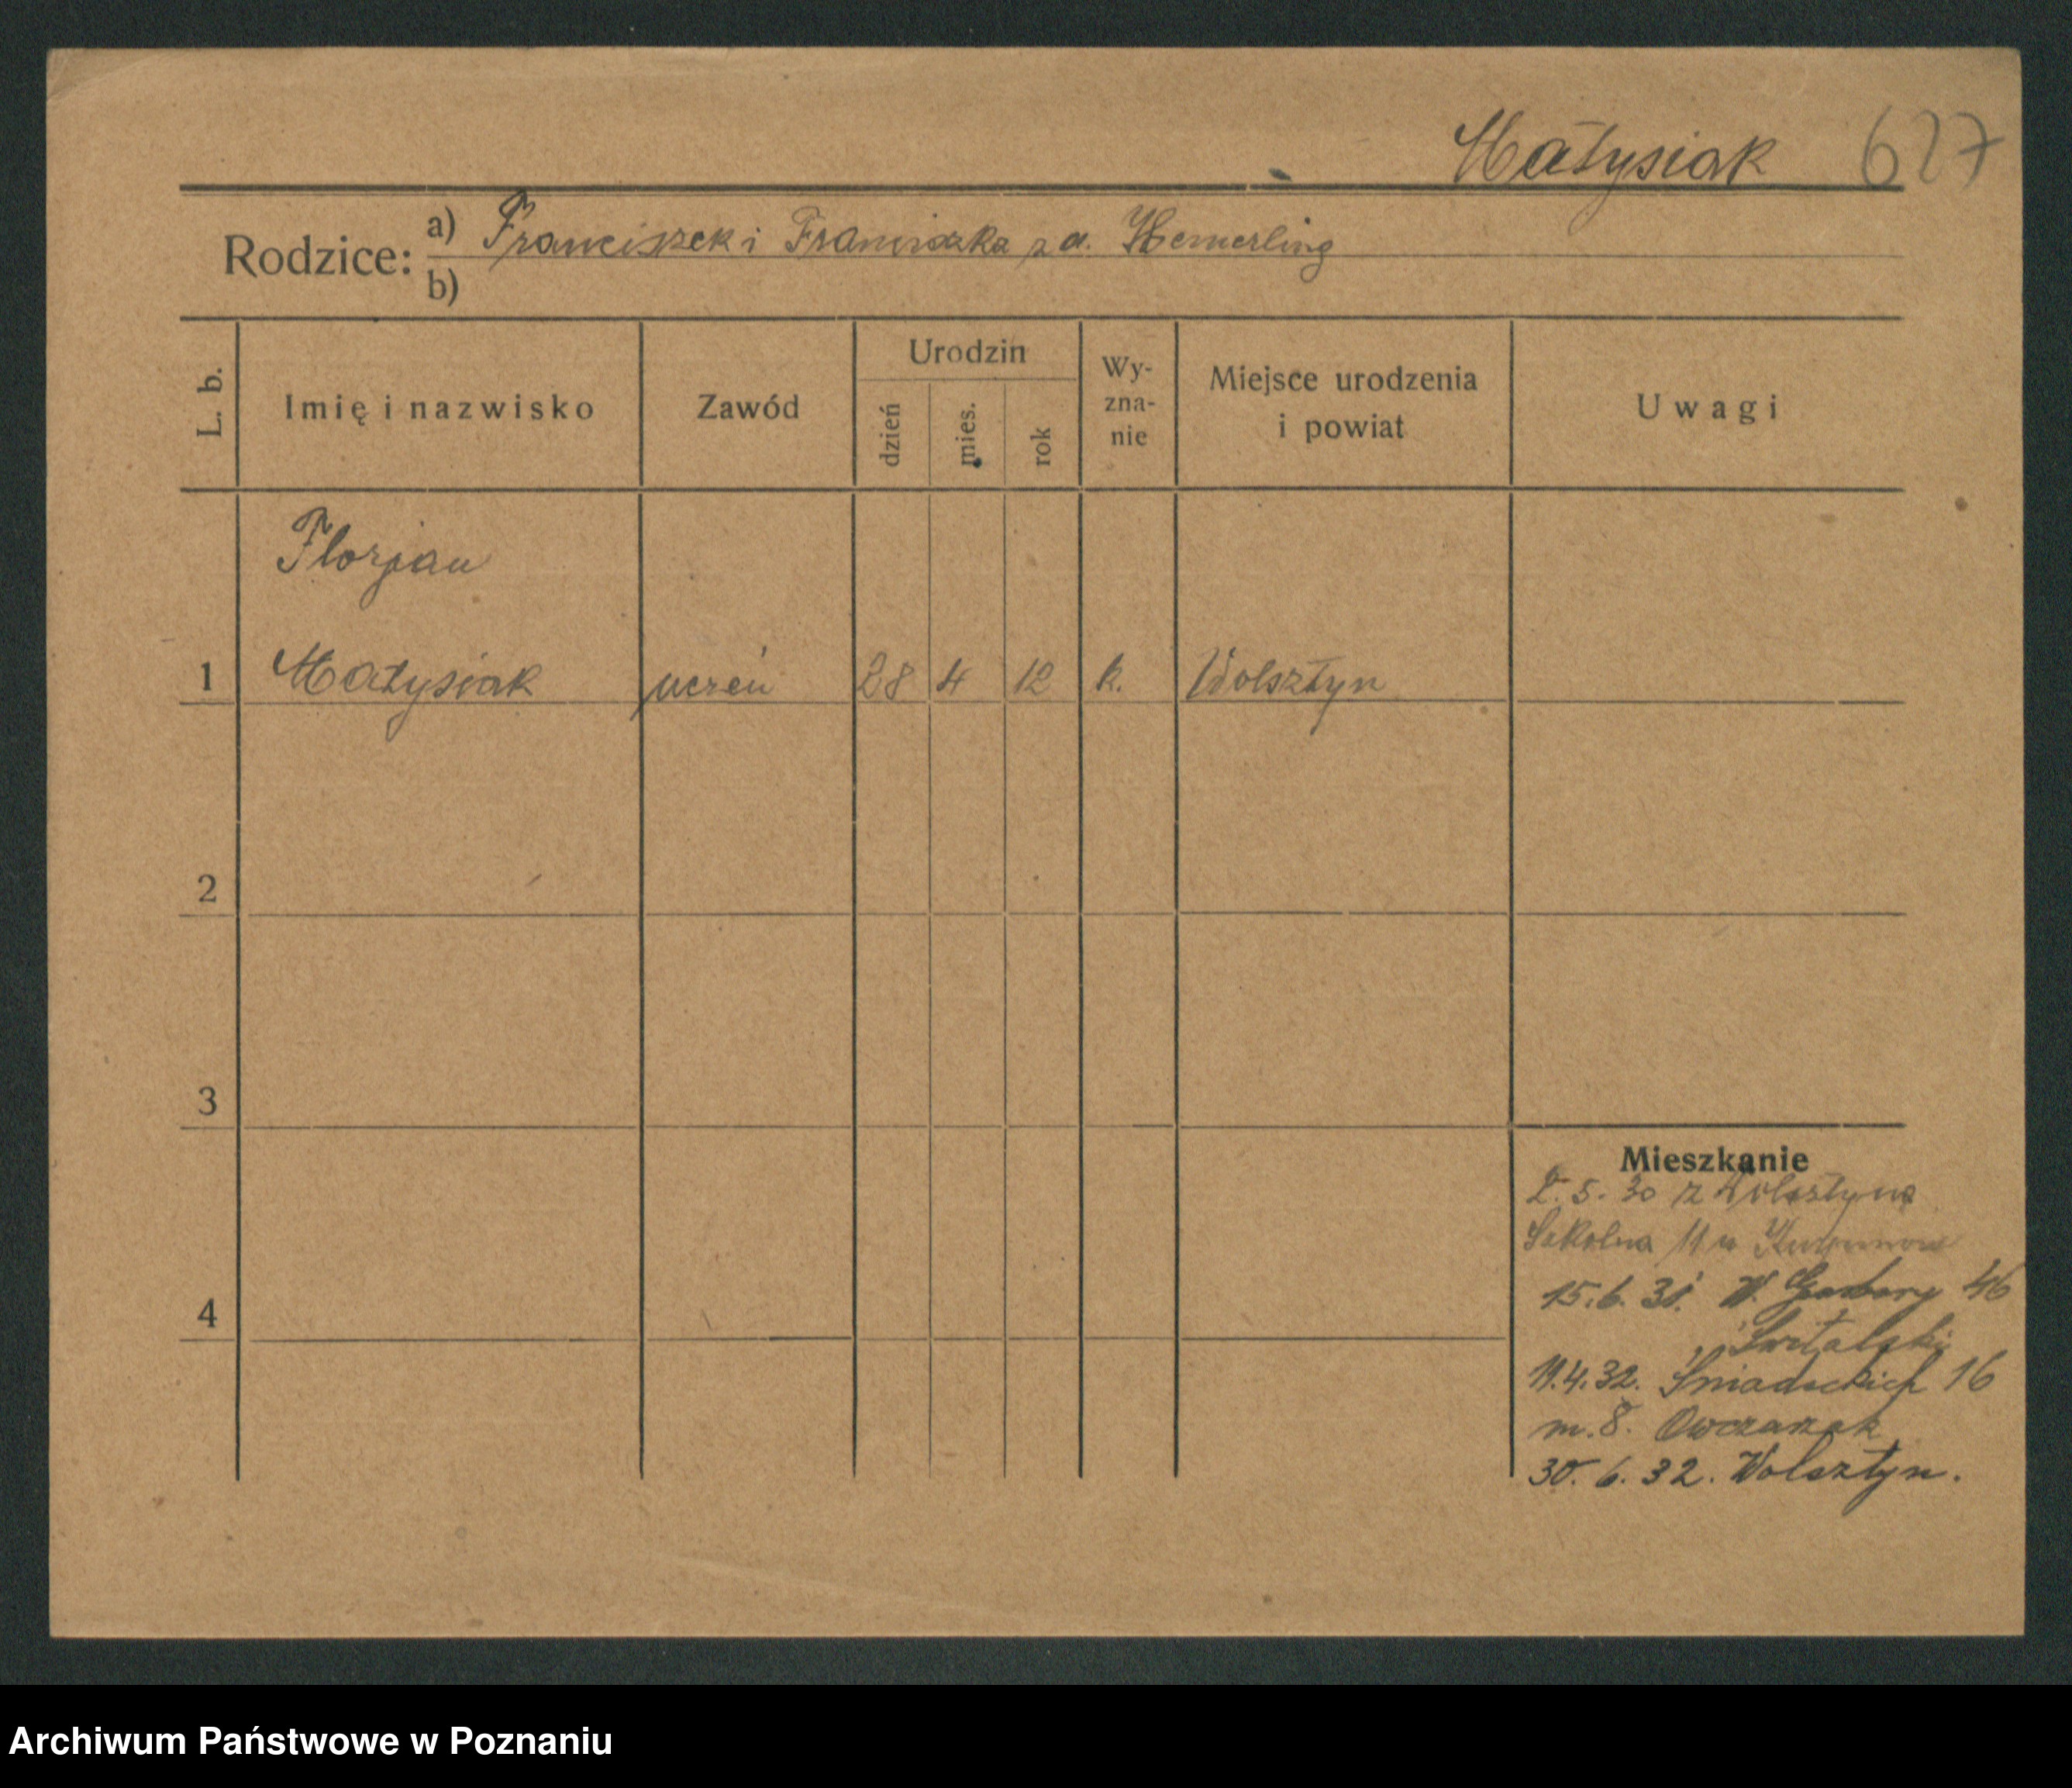 Matysiak 627
Rodzice: a) Franciszek i Franciszka z d. Hemerling
b)
L. b.
Imię i nazwisko
Zawód
Urodzin
dzień
mies.
rok
Wy-
zna-
nie
Miejsce urodzenia
i powiat
Uwagi
Florjan
1 Matysiak uczeń 28 4 12 k. Wolsztyn
2
3
4
Mieszkanie
2. 5. 30 z Wolsztyna
Szkolna 11 u
15. 6. 31. W. Garbary 46
Świtalski
11.4.32. Śniadeckich 16
m. 8. Owczarzak
30. 6. 32. Wolsztyn.
Archiwum Państwowe w Poznaniu